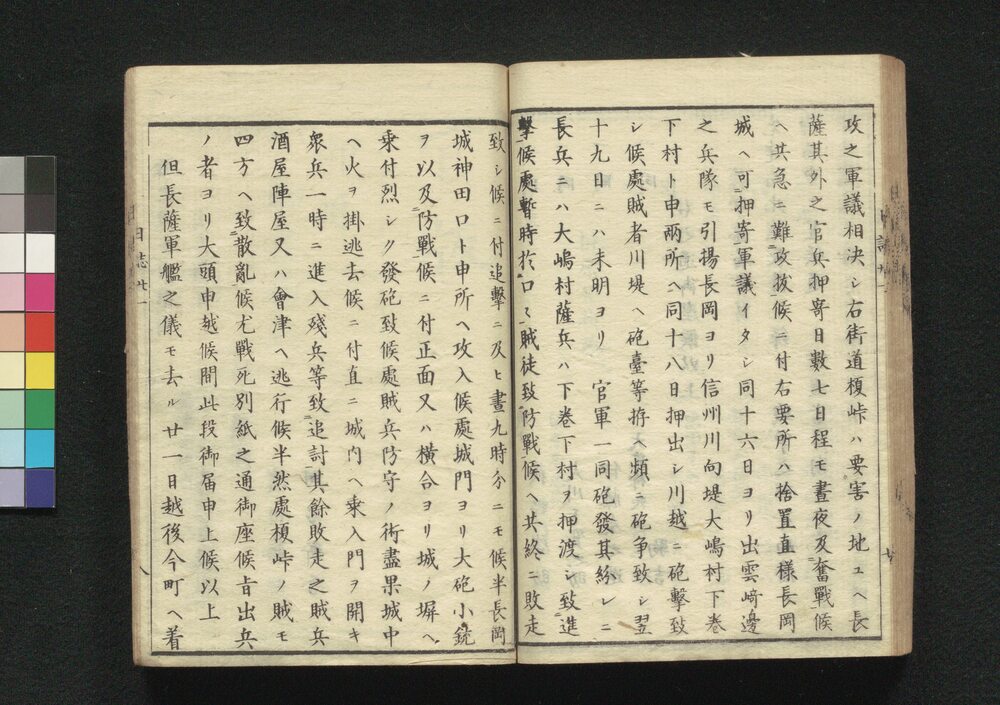 攻之軍議相决シ右街道榎峠ハ要害ノ地ユヘ長
薩其外之官兵押寄日數七日程モ晝夜及奮戰候
ヘ共急ニ難攻拔候ニ付右要所ハ捨置直樣長岡
城ヘ可押寄軍議イタシ同十六日ヨリ出雲﨑邊
之兵隊モ引揚長岡ヨリ信州川向堤大嶋村下巻
下村ト申兩所ヘ同十八日押出シ川越ニ砲擊致
シ候處賊者川堤ヘ砲臺等拵ヘ頻ニ砲争致シ翌
十九日ニハ未明ヨリ　官軍一同砲發其紛レニ
長兵ニハ大嶋村薩兵ハ下巻下村ヲ押渡シ致進
擊候處暫時於口々賊徒致防戰候ヘ共終ニ敗走
致シ候ニ付追擊ニ及ヒ晝九時分ニモ候半長岡
城神田口ト申所ヘ攻入候處城門ヨリ大砲小銃
ヲ以及防戰候ニ付正面又ハ横合ヨリ城ノ塀ヘ
乘付烈シク發砲致候處賊兵防守ノ術盡果城中
ヘ火ヲ掛逃去候ニ付直ニ城内ヘ乘入門ヲ開キ
衆兵一時ニ進入殘兵等致追討其餘敗走之賊兵
酒屋陣屋又ハ會津ヘ逃行候半然處榎峠ノ賊モ
四方ヘ致散亂候尤戰死別紙之通御座候旨出兵
ノ者ヨリ大頭申越候間此段御届申上候以上
但長薩軍艦之儀モ去ル廿一日越後今町ヘ着
日誌廿一
八